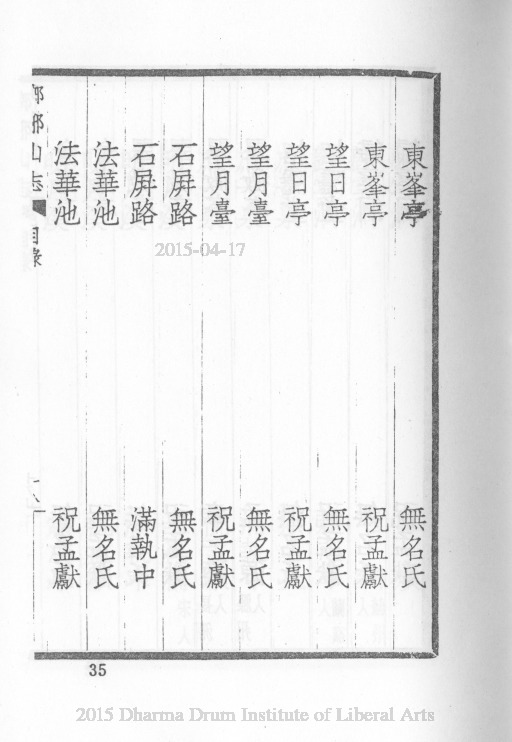 東峯亭 無名氏
東峯亭 祝孟獻
望日亭 無名氏
望日亭 祝孟獻
望月臺 無名氏
望月臺 祝孟獻
石屏路 無名氏
石屏路 滿執中
法華池 無名氏
法華池 祝孟獻
山志 目錄
35
2015-04-17
2015 Dharma Drum Institute of Liberal Arts